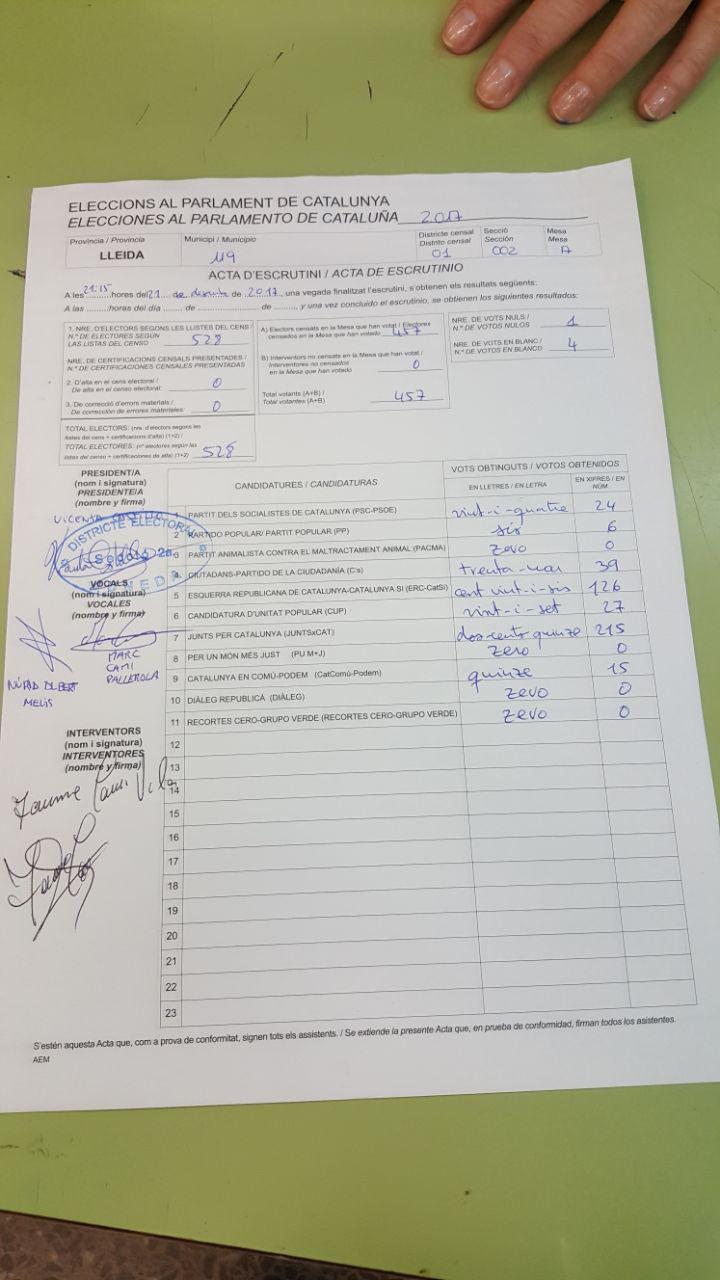 ELECCIONS AL PARLAMENT DE CATALUNYA
ELECCIONES AL PARLAMENTO DE CATALUÑA 2017
Provincia / Provincia
LLEIDA
Municipi / Municipio
119
Districte censal
Distrito censal
01
Secció
Sección
002
Mesa
Mesa
A
ACTA D'ESCRUTINI / ACTA DE ESCRUTINIO
A les 21:15 hores del 21 de desembre de 2017, una vegada finalitzat l'escrutini, s'obtenen els resultats següents:
A las ......... horas del día ....... de .................. de ......... y una vez concluido el escrutinio, se obtienen los siguientes resultados:
1. NRE. D'ELECTORS SEGONS LES LLISTES DEL CENS /
N.º DE ELECTORES SEGÚN
LAS LISTAS DEL CENSO 528
NRE. DE CERTIFICACIONS CENSALS PRESENTADES /
N.º DE CERTIFICACIONES CENSALES PRESENTADAS
2. D'alta en el cens electoral /
De alta en el censo electoral: 0
3. De correcció d'errors materials /
De corrección de errores materiales: 0
TOTAL ELECTORS: (nre. d'electors segons les
llistes del cens + certificacions d'alta) (1+2) /
TOTAL ELECTORES: (nº electores según las
listas del censo + certificaciones de alta) (1+2) 528
A) Electors censats en la Mesa que han votat / Electores
censados en la Mesa que han votado 457
B) Interventors no censats en la Mesa que han votat /
Interventores no censados
en la Mesa que han votado 0
Total votants (A+B) /
Total votantes (A+B) 457
NRE. DE VOTS NULS /
N.º DE VOTOS NULOS 1
NRE. DE VOTS EN BLANC /
N.º DE VOTOS EN BLANCO 4
PRESIDENT/A
(nom i signatura)
PRESIDENTE/A
(nombre y firma)
DISTRICTE ELECTORAL
VOCALS
(nom i signatura)
VOCALES
(nombre y firma)
MELIS
MARC
CAMI
PALLEROLA
INTERVENTORS
(nom i signatura)
INTERVENTORES
(nombre y firma)
Jaume Camí Vila
CANDIDATURES / CANDIDATURAS
VOTS OBTINGUTS / VOTOS OBTENIDOS
EN LLETRES / EN LETRA
EN XIFRES / EN NÚM.
1 PARTIT DELS SOCIALISTES DE CATALUNYA (PSC-PSOE) vint-i-quatre 24
2 PARTIDO POPULAR/ PARTIT POPULAR (PP) sis 6
3 PARTIT ANIMALISTA CONTRA EL MALTRACTAMENT ANIMAL (PACMA) zero 0
4 CIUTADANS-PARTIDO DE LA CIUDADANÍA (Cs) trenta-nou 39
5 ESQUERRA REPUBLICANA DE CATALUNYA-CATALUNYA SÍ (ERC-CatSí) cent vint-i-sis 126
6 CANDIDATURA D'UNITAT POPULAR (CUP) vint-i-set 27
7 JUNTS PER CATALUNYA (JUNTSxCAT) dos-cents quinze 215
8 PER UN MÓN MÉS JUST (PU M+J) zero 0
9 CATALUNYA EN COMÚ-PODEM (CatComú-Podem) quinze 15
10 DIÀLEG REPUBLICÀ (DIÀLEG) zero 0
11 RECORTES CERO-GRUPO VERDE (RECORTES CERO-GRUPO VERDE) zero 0
12
13
14
15
16
17
18
19
20
21
22
23
S'estén aquesta Acta que, com a prova de conformitat, signen tots els assistents. / Se extiende la presente Acta que, en prueba de conformidad, firman todos los asistentes.
AEM